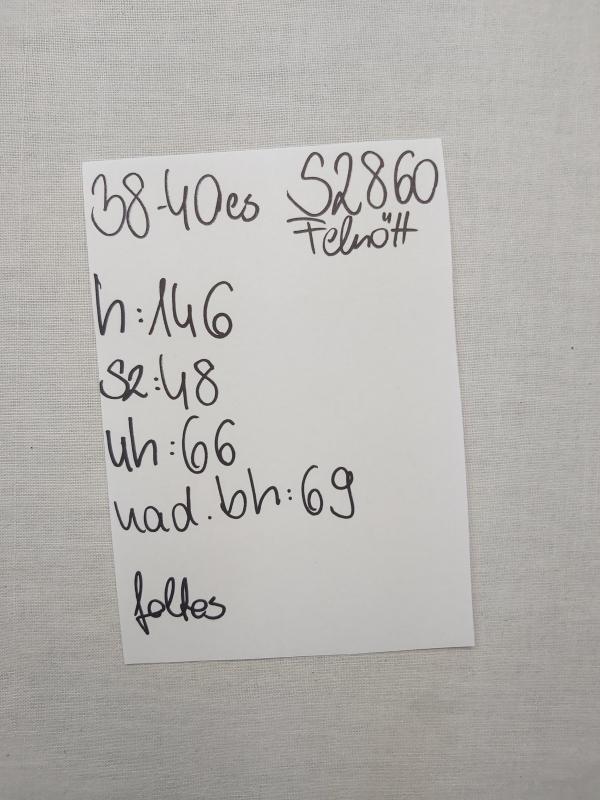 38-40es S2860
Felnőtt
h:146
S2:48
uh:66
nad.bh:69
foltos